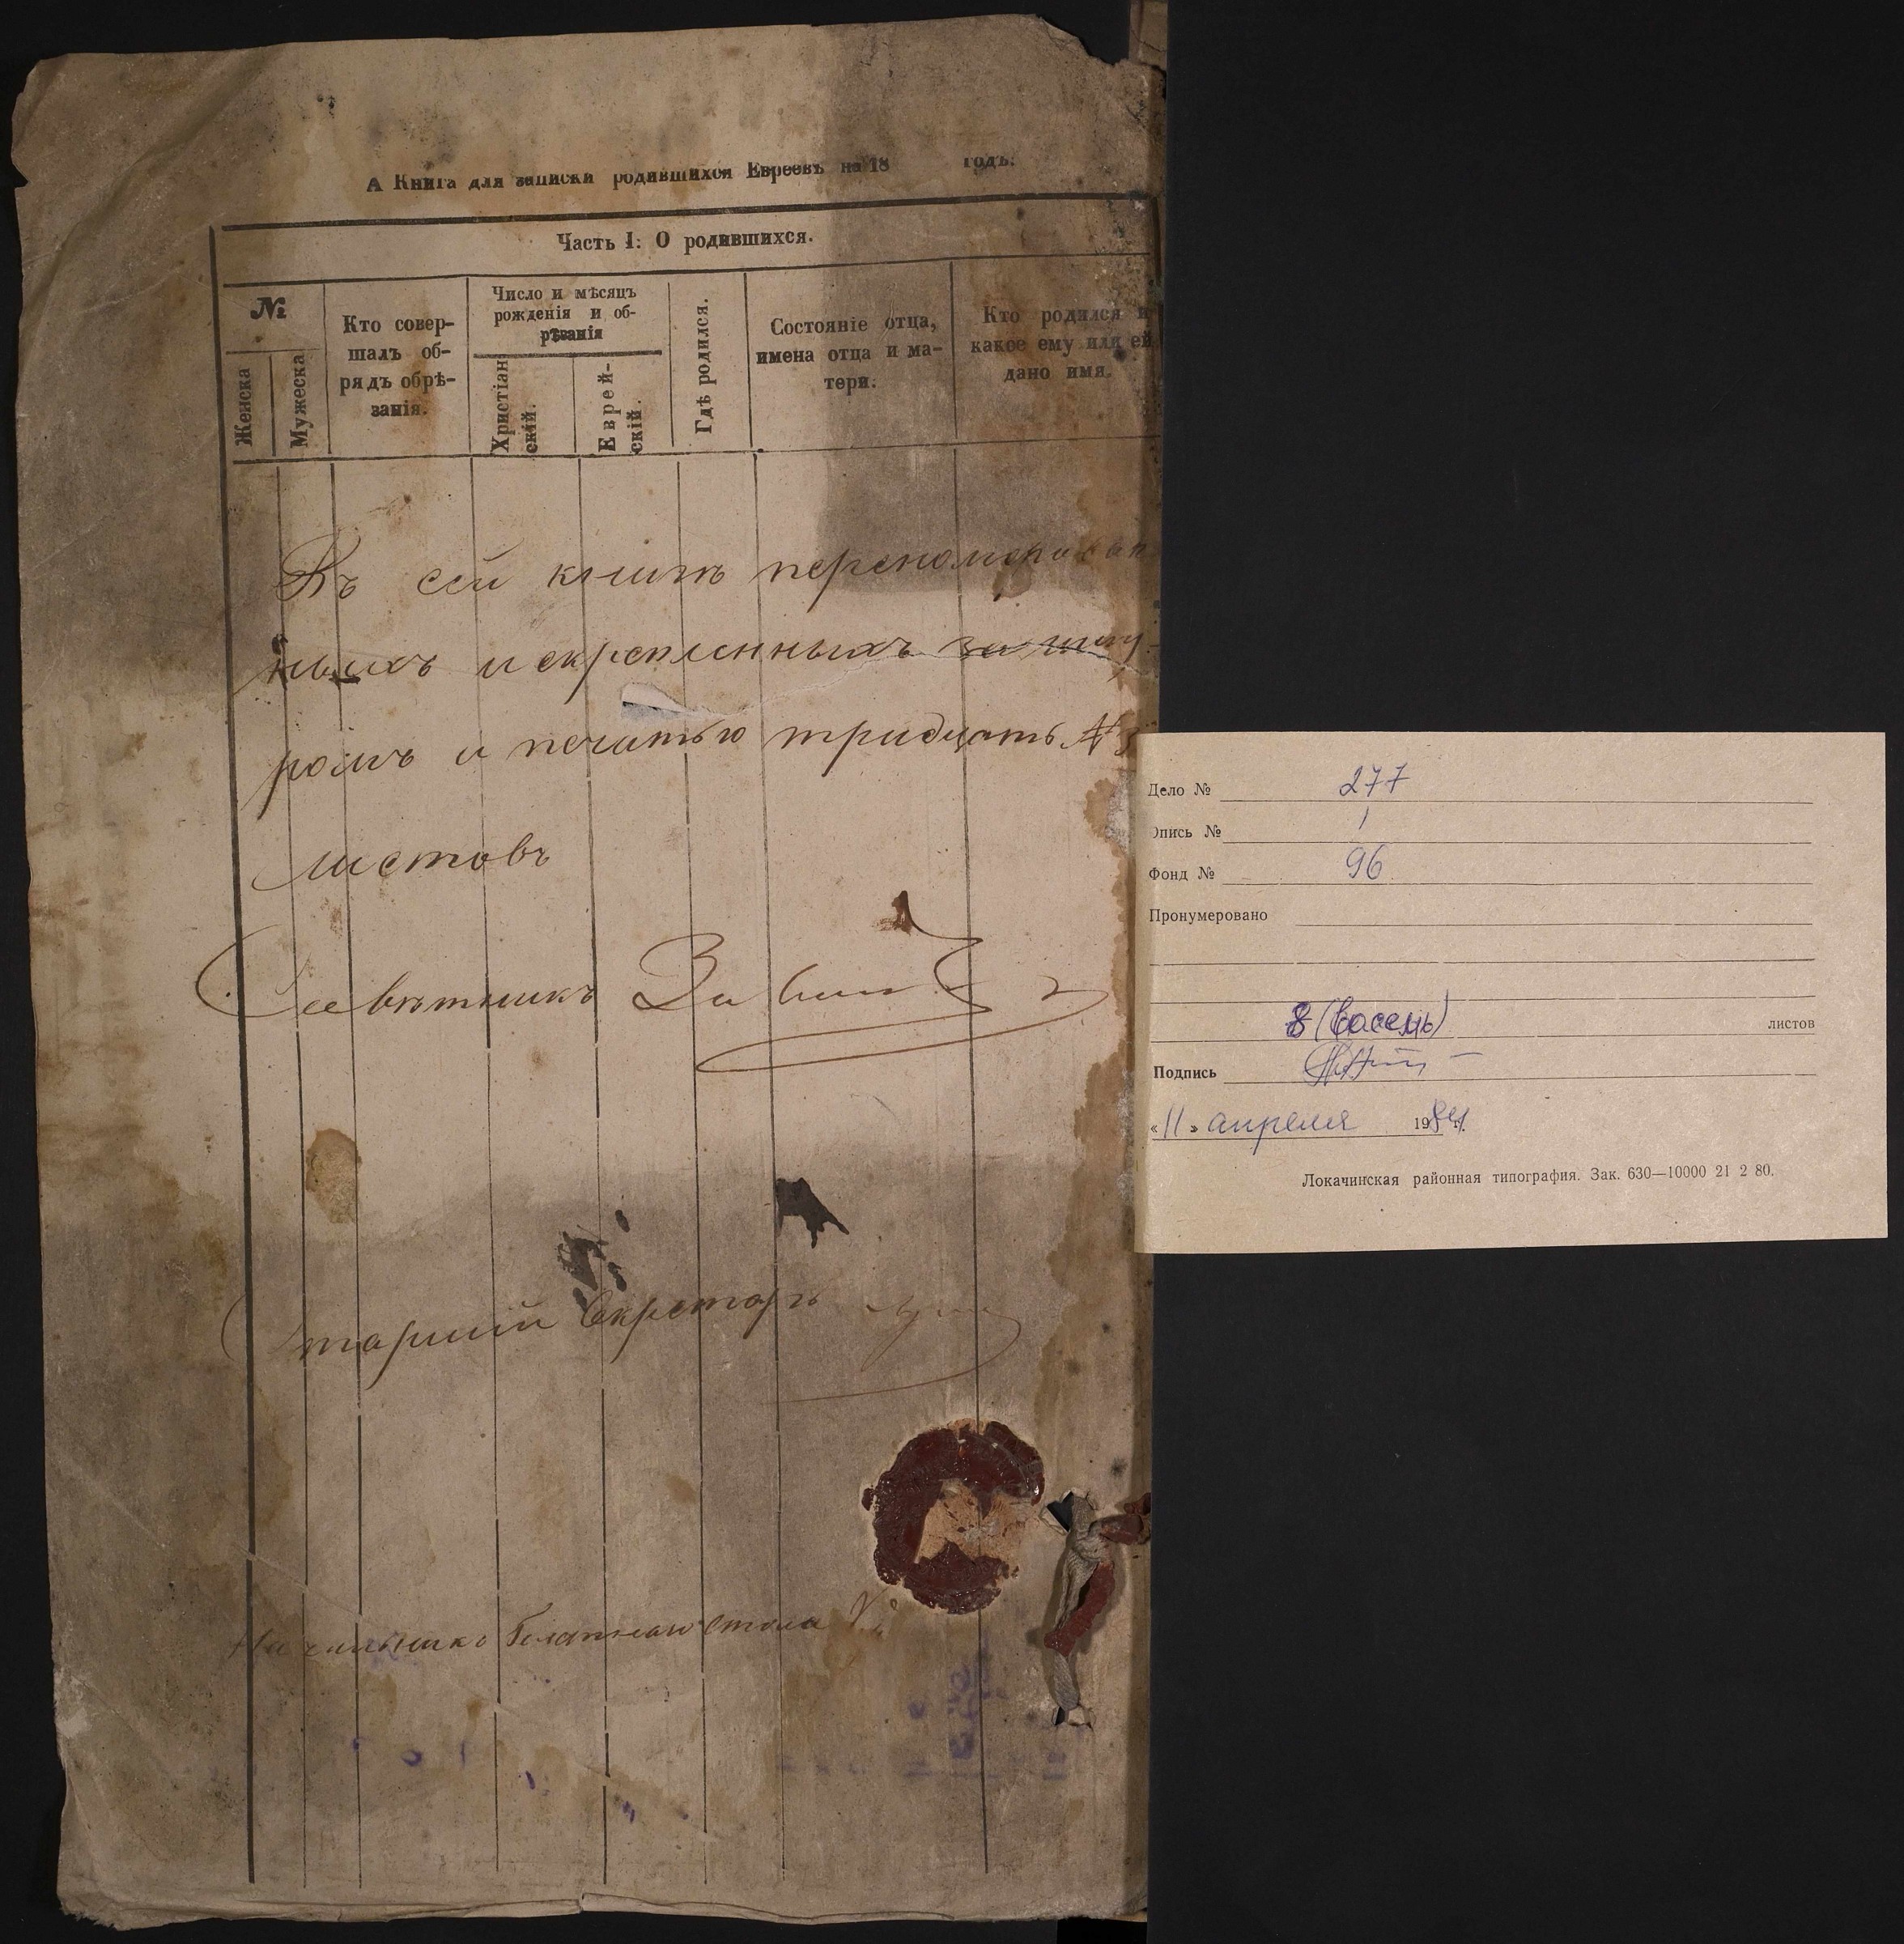 А Книга для записки родившихся Евреевъ на 18 годъ.
Часть I: О родившихся.
№
Женска
Мужеска
Кто совер-
шалъ об-
рядъ обрѣ-
занія.
Число и мѣсяцъ
рожденія и об-
рѣзанія
Христіан
скій.
Еврей-
скій.
Гдѣ родился.
Состояніе отца,
имена отца и ма-
тери.
Кто родился и
какое ему или ей
дано имя.
Въ сей книгѣ перенумерован
ныхъ и скрепленныхъ за шну
ромъ и печатью тридцать
листовъ
Советникъ
Старший Секретарь
Начальникъ стола
Дело № 277
Опись № 1
Фонд № 96
Пронумеровано
8 (восемь) листов
Подпись
«11» апреля 1984 г.
Локачинская районная типография. Зак. 630—10000 21 2 80.